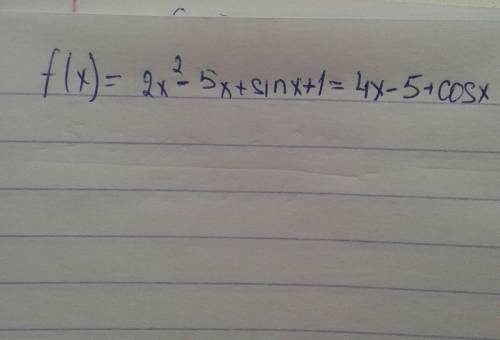 f(x) = 2x² - 5x + sinx + 1 = 4x - 5 + cosx